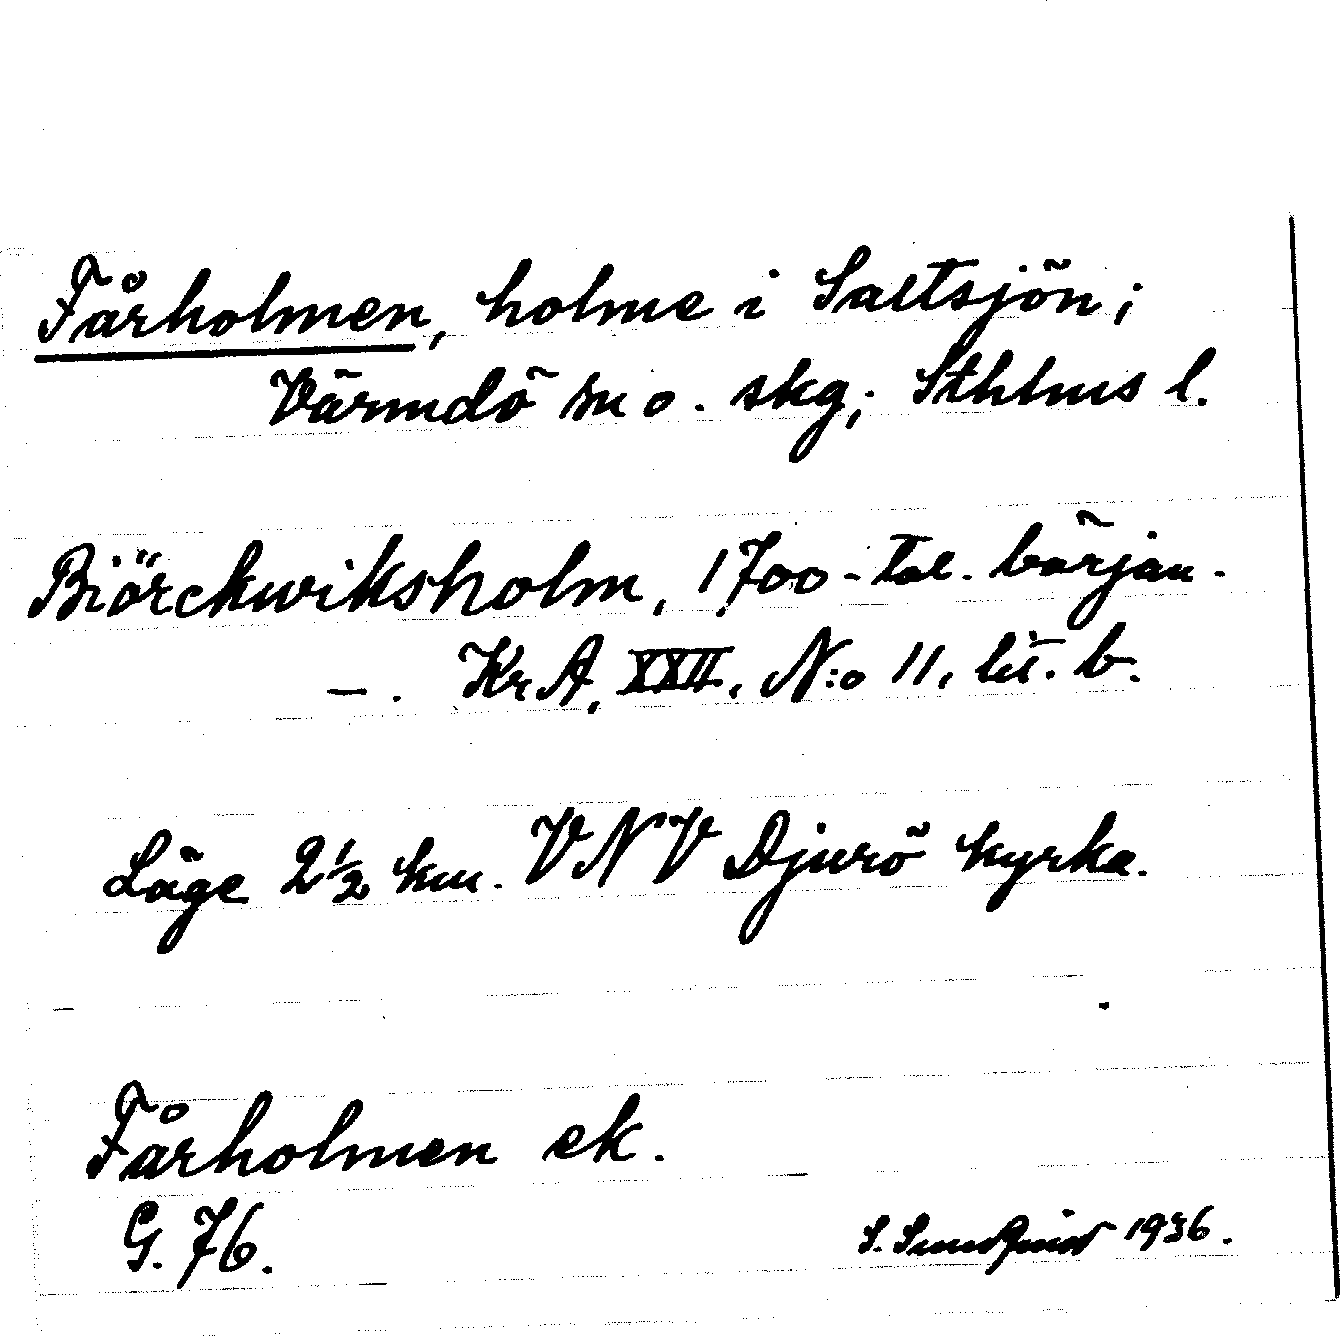 Fårholmen, holme i Saltsjön;
Värmdö sn o. skg; Sthlms l.
Biörckwiksholm, 1700-tal. början.
—. KrA, XXII, N:o 11, lit. b.
Läge 2½ km. VNV Djurö kyrka.
Fårholmen ek.
G. 76.
S. Sundqvist 1936.